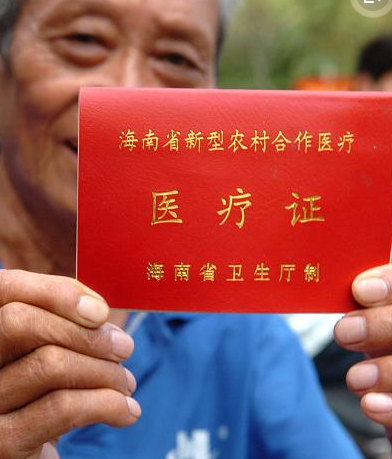 海南省新型农村合作医疗
医疗证
海南省卫生厅制